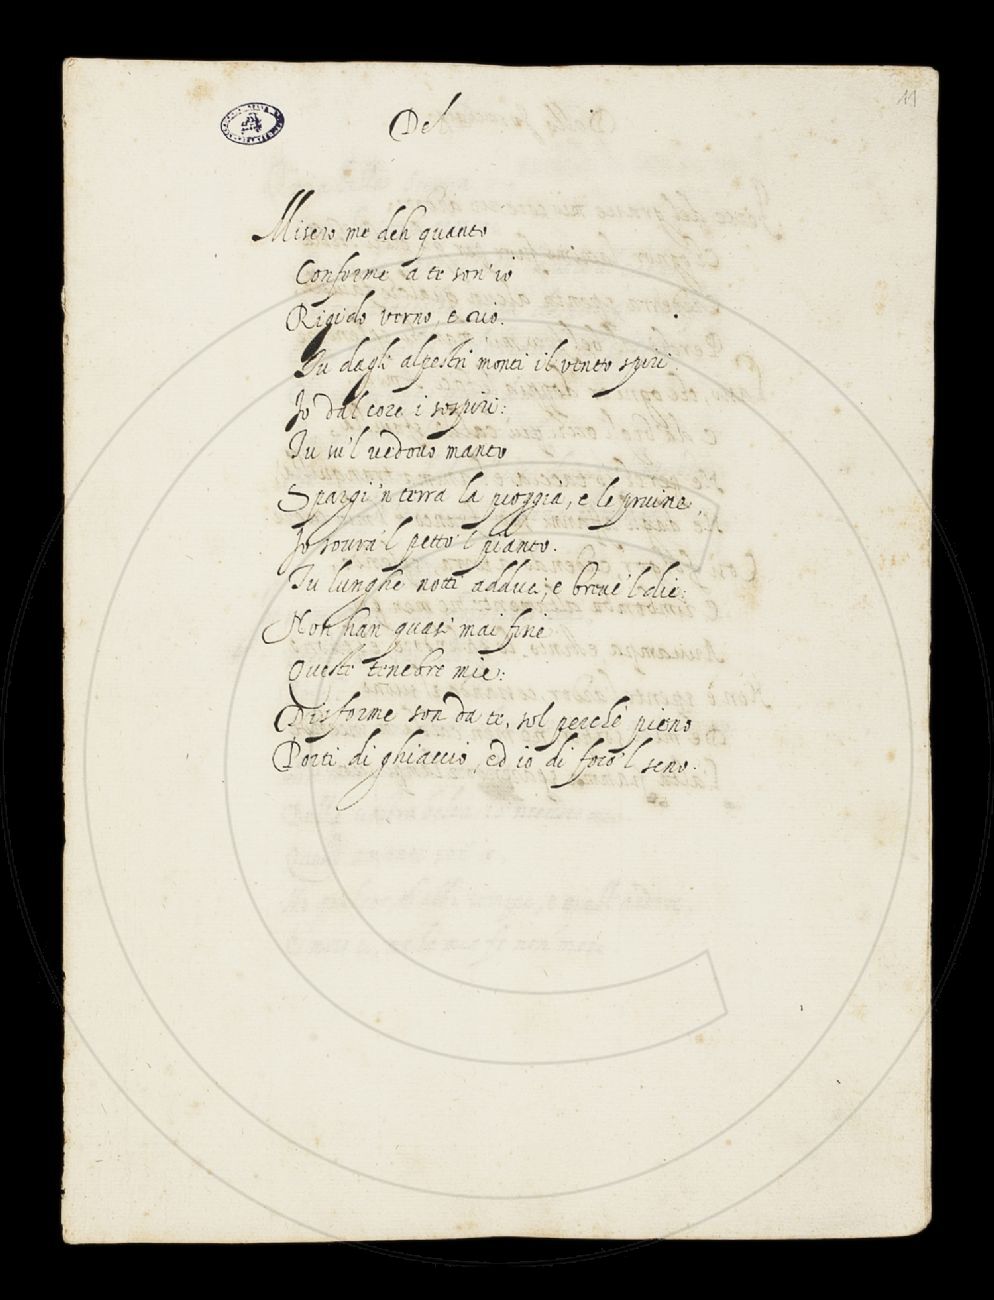 11
Del
Misero me deh quanto
Conforme a te son'io
Rigido verno, e rio.
Tu dagli alpestri monti il vento spiri:
Io dal core i sospiri:
Tu su'l vedovo manto
Spargi 'n terra la pioggia, e le pruine,
Io sovra 'l petto 'l pianto.
Tu lunghe notti adduci, e breve 'l die:
Non han quasi mai fine
Queste tenebre mie:
Disforme son da te, sol perchè pieno
Porti di ghiaccio, ed io di foco 'l seno.